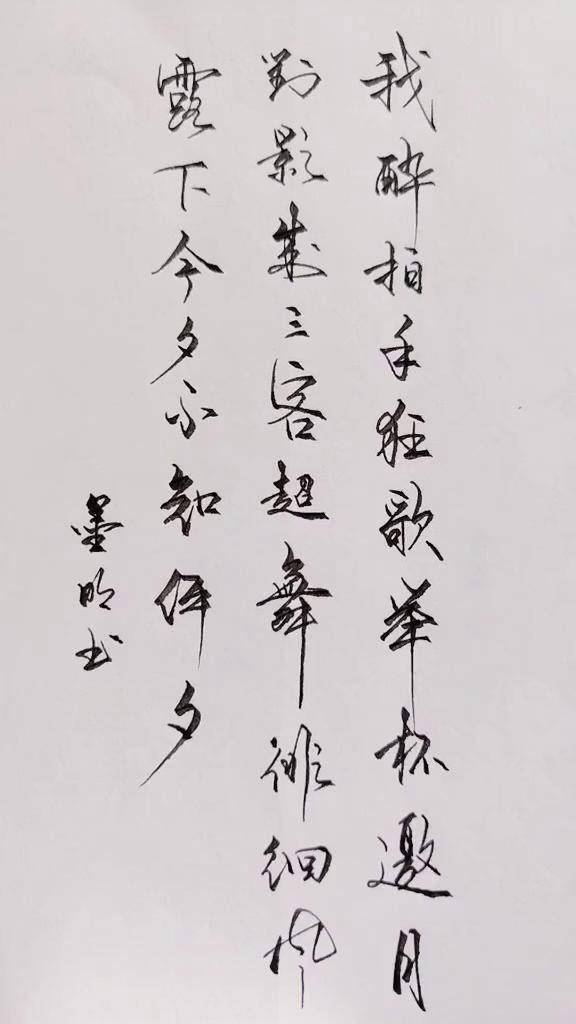 我醉拍手狂歌举杯邀月
對影成三客起舞徘徊风
露下今夕不知何夕
墨明书